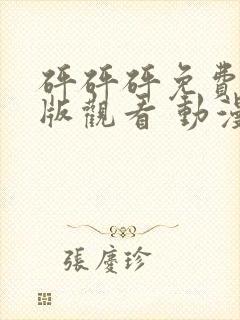 砰砰砰免費
版觀看 動漫
張慶珍